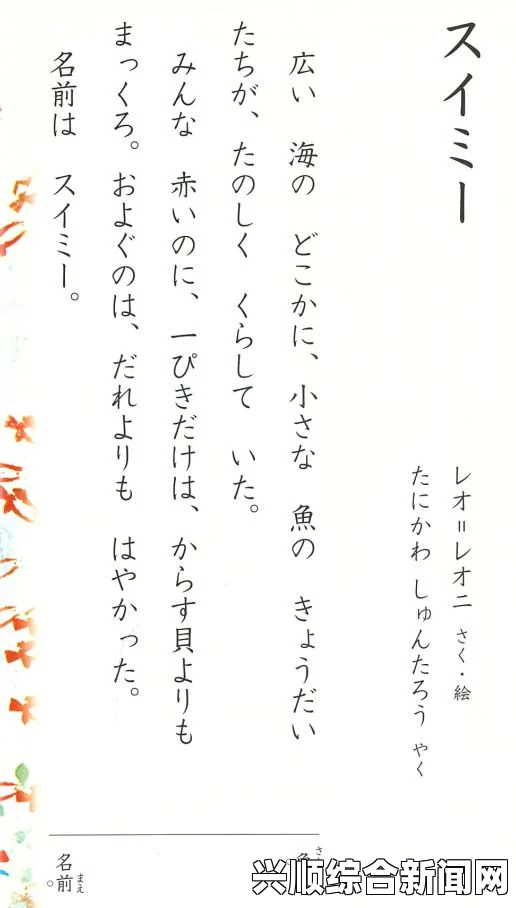 スイミー
レオ＝レオニ　さく・絵
たにかわ　しゅんたろう　やく
広い　海の　どこかに、小さな　魚の　きょうだい
たちが、たのしく　くらして　いた。
みんな　赤いのに、一ぴきだけは、からす貝よりも
まっくろ。およぐのは、だれよりも　はやかった。
名前は　スイミー。
名前
まえ
。
兴顺综合新闻网